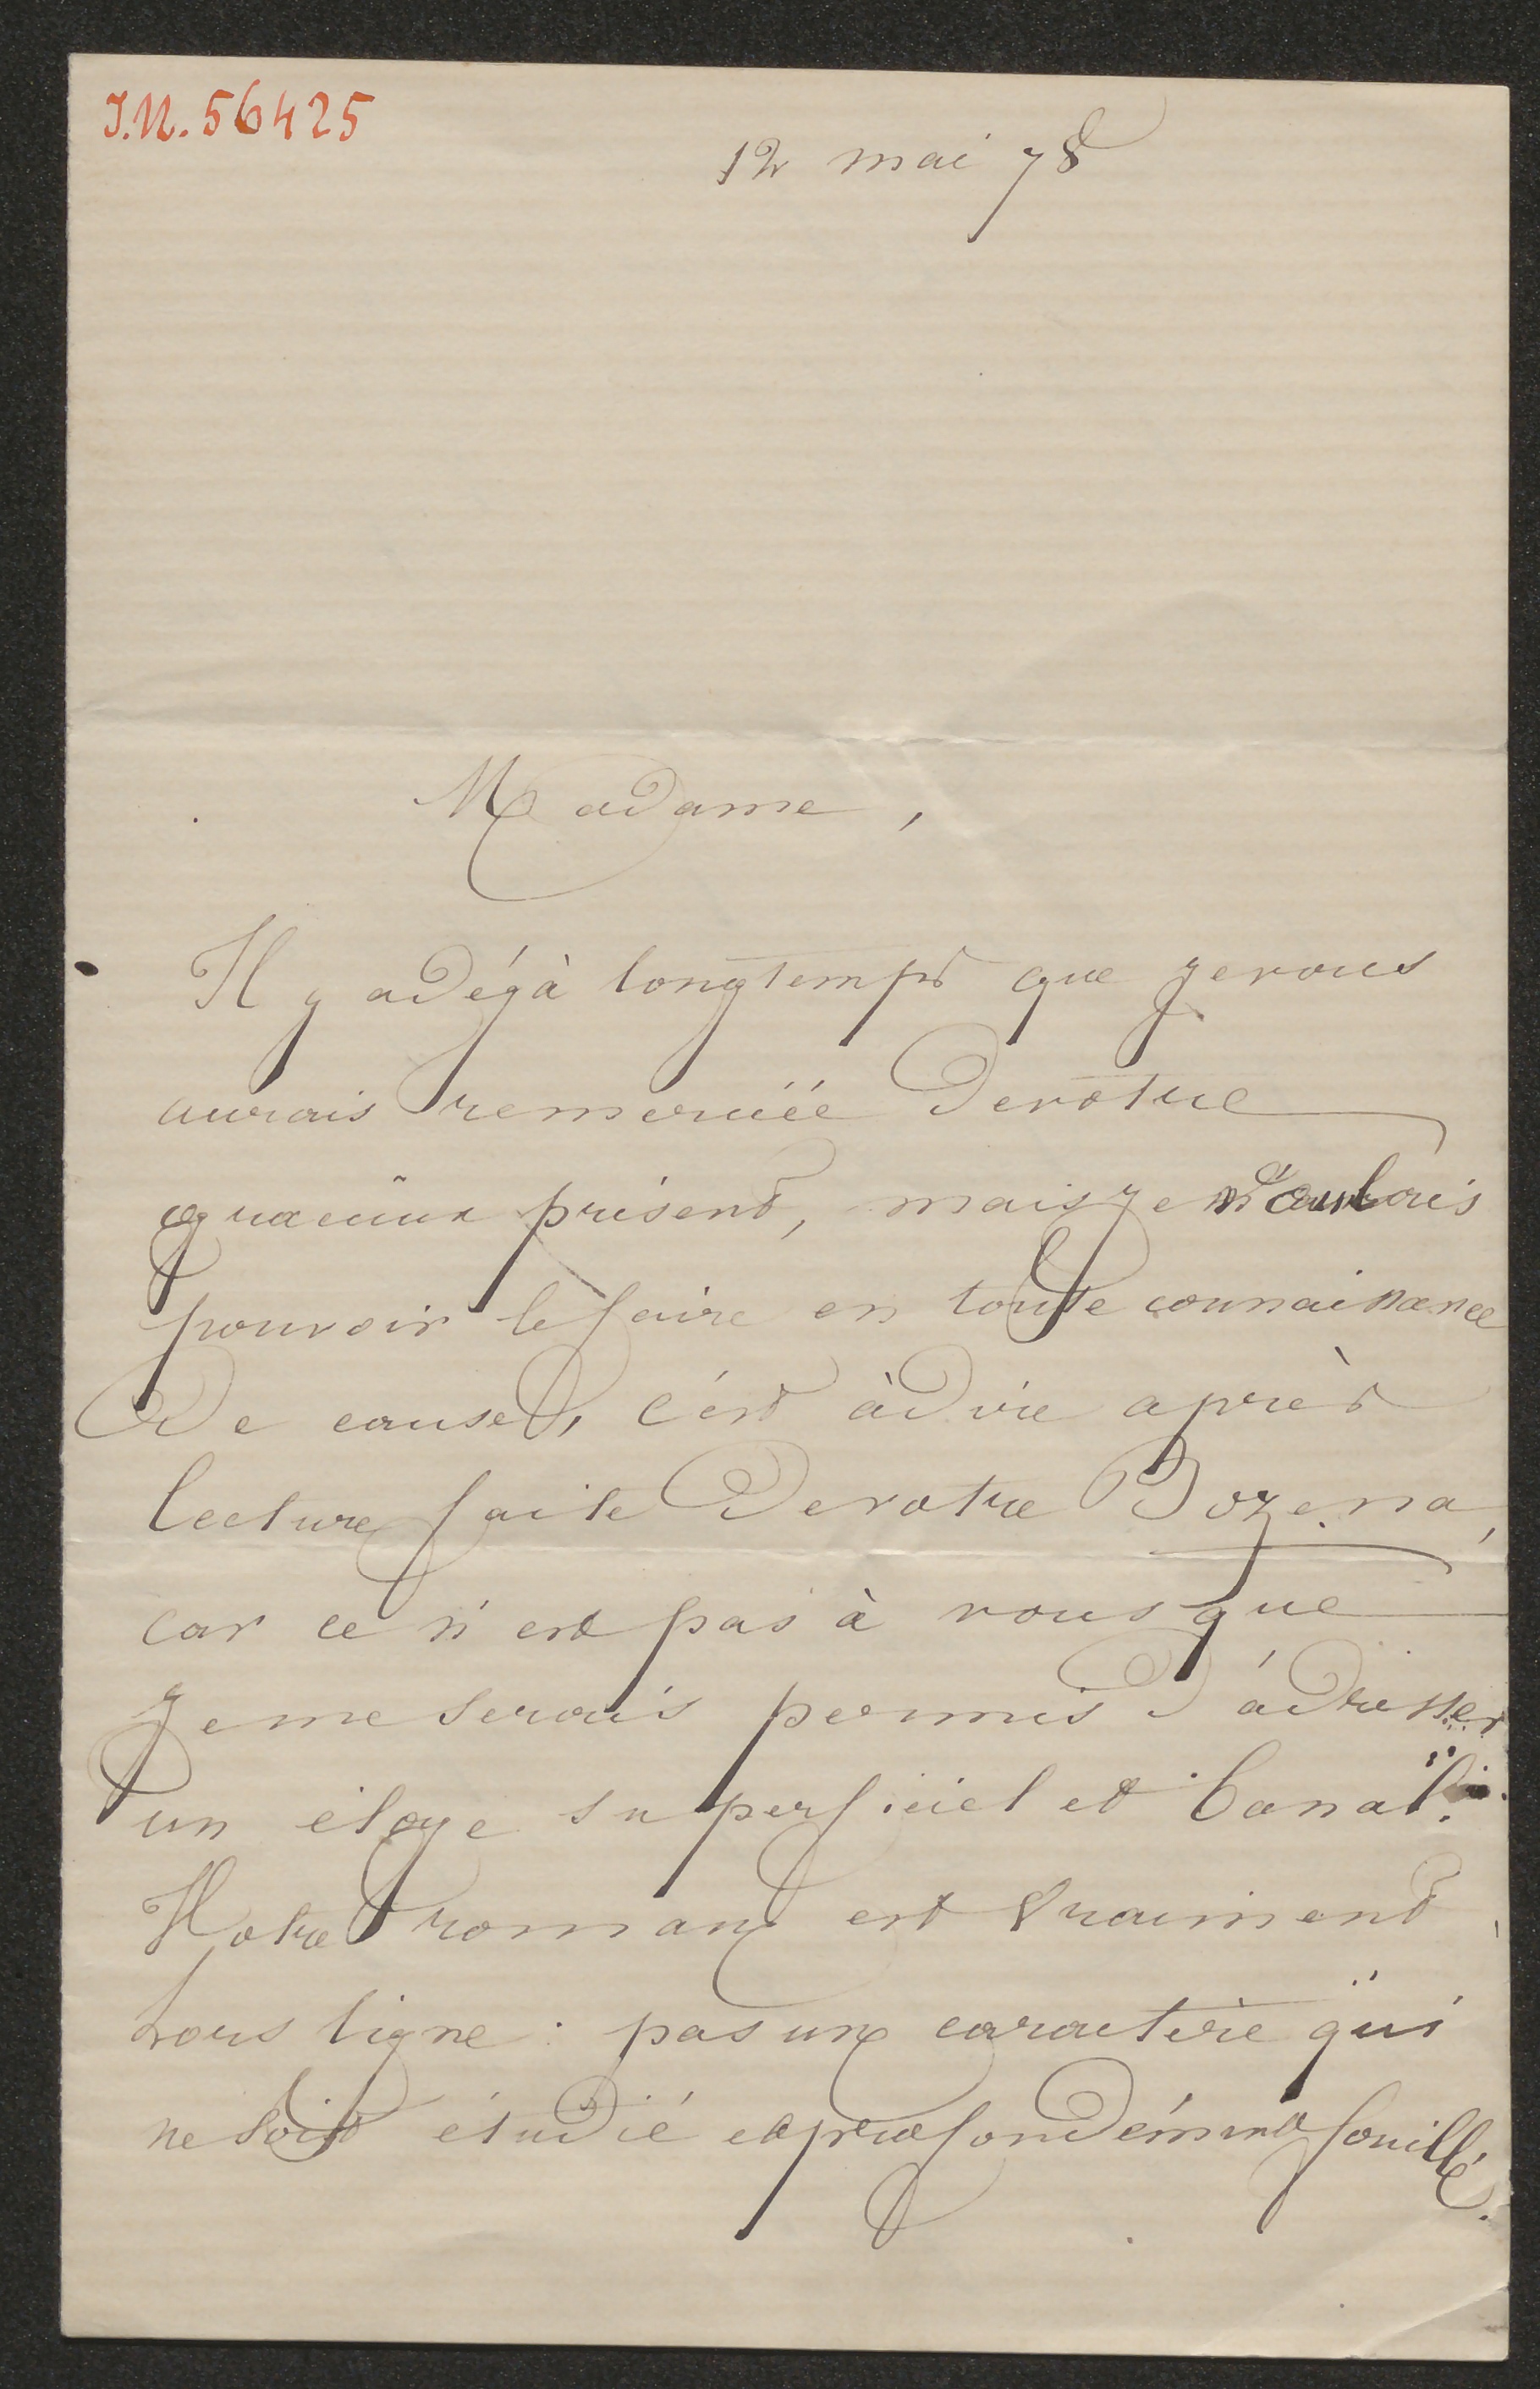 I.N. 56425
12 mai 78
Madame,
Il y a déjà longtemps que je vous
aurais remerciée de votre
gracieux présent, mais je voulais
pouvoir le faire en toute connaissance
de cause, c'est à dire après
lecture faite de votre Bozena,
car ce n'est pas à vous que
je me serais permis d'adresser
un éloge superficiel et banal.
Votre roman est vraiment
hors ligne : pas un caractère qui
ne soit étudié et profondément fouillé.